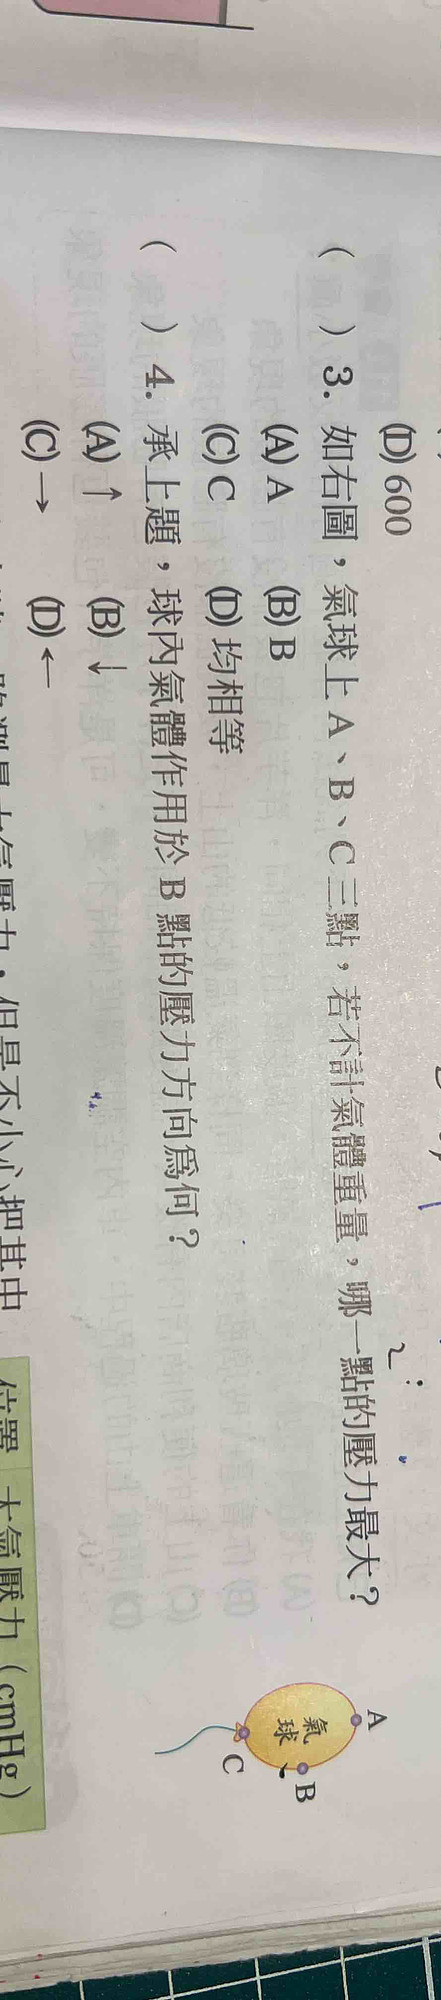 (D) 600
(　) 3. 如右圖，氣球上 A、B、C 三點，若不計氣體重量，哪一點的壓力最大？
(A) A　(B) B
(C) C　(D) 均相等
A
B
C
氣球
(　) 4. 承上題，球內氣體作用於 B 點的壓力方向爲何？
(A) ↑　(B) ↓
(C) →　(D) ←
大氣壓力，但是不小心把其中
位置 大氣壓力（cmHg）